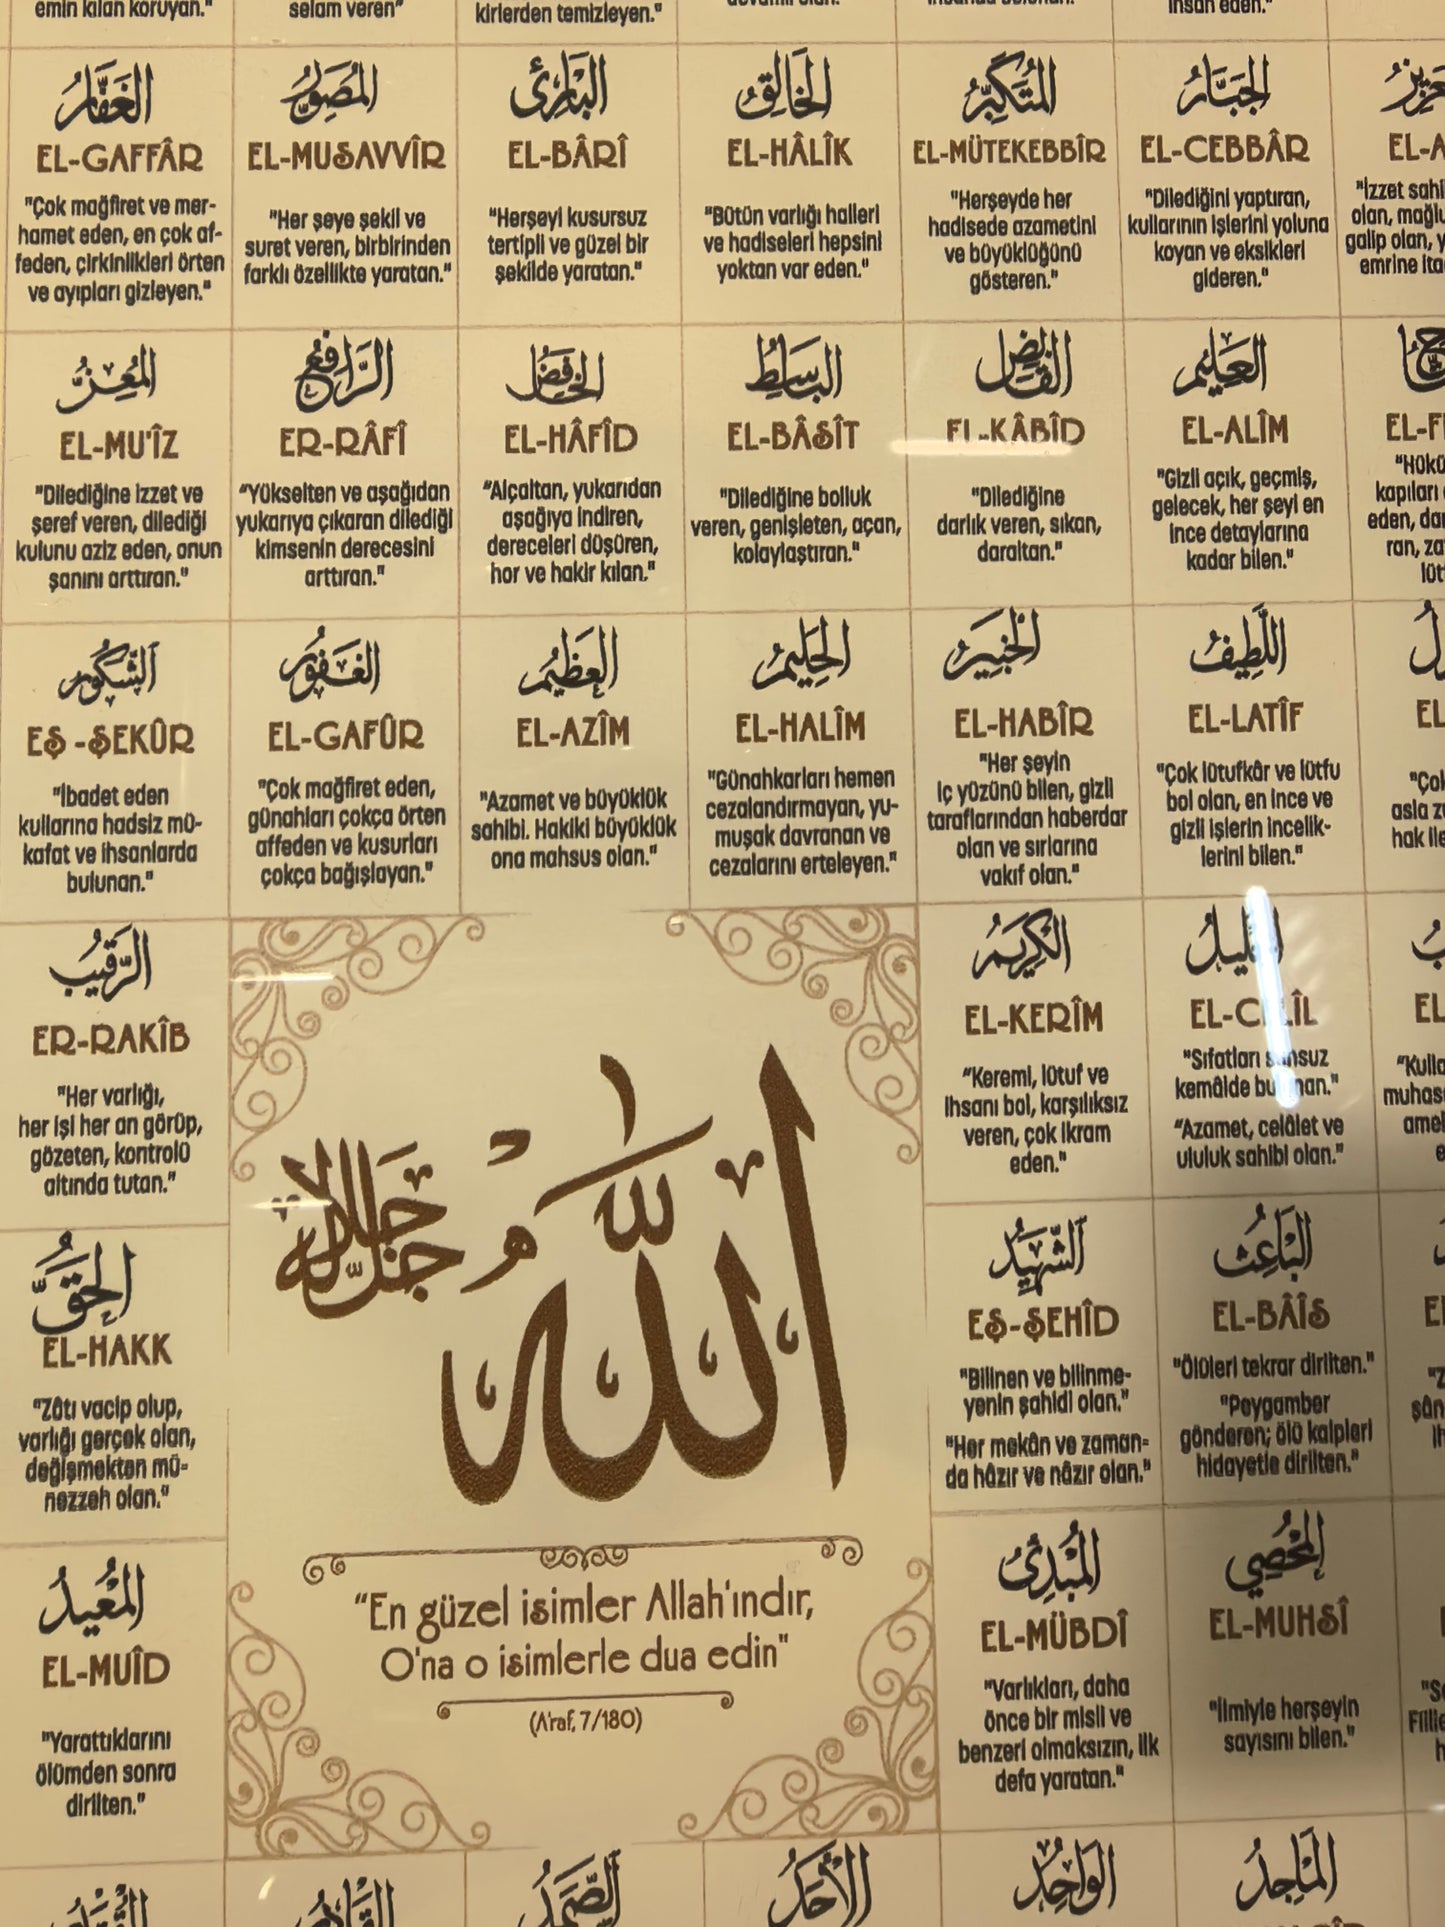 emin kılan koruyan."
selam veren"
kirlerden temizleyen."
الغفار
EL-GAFFÂR
"Çok mağfiret ve mer-
hamet eden, en çok af-
feden, çirkinlikleri örten
ve ayıpları gizleyen."
المصور
EL-MUSAVVÎR
"Her şeye şekil ve
suret veren, birbirinden
farklı özellikte yaratan."
البارئ
EL-BÂRÎ
"Herşeyi kusursuz
tertipli ve güzel bir
şekilde yaratan."
الخالق
EL-HÂLÎK
"Bütün varlığı halleri
ve hadiseleri hepsini
yoktan var eden."
المتكبر
EL-MÜTEKEBBÎR
"Herşeyde her
hadisede azametini
ve büyüklüğünü
gösteren."
الجبار
EL-CEBBÂR
"Dilediğini yaptıran,
kullarının işlerini yoluna
koyan ve eksikleri
gideren."
"İzzet
galip olan,
emrine
المعز
EL-MU'ÎZ
"Dilediğine izzet ve
şeref veren, dilediği
kulunu aziz eden, onun
şanını arttıran."
الرافع
ER-RÂFÎ
"Yükselten ve aşağıdan
yukarıya çıkaran dilediği
kimsenin derecesini
arttıran."
الخافض
EL-HÂFÎD
"Alçaltan, yukarıdan
aşağıya indiren,
dereceleri düşüren,
hor ve hakir kılan."
الباسط
EL-BÂSÎT
"Dilediğine bolluk
veren, genişleten, açan,
kolaylaştıran."
القابض
EL-KÂBÎD
"Dilediğine
darlık veren, sıkan,
daraltan."
العليم
EL-ALÎM
"Gizli açık, geçmiş,
gelecek, her şeyi en
ince detaylarına
kadar bilen."
kapıları
الشكور
EŞ -ŞEKÛR
"İbadet eden
kullarına hadsiz mü-
kafat ve ihsanlarda
bulunan."
الغفور
EL-GAFÛR
"Çok mağfiret eden,
günahları çokça örten
affeden ve kusurları
çokça bağışlayan."
العظيم
EL-AZÎM
"Azamet ve büyüklük
sahibi. Hakiki büyüklük
ona mahsus olan."
الحليم
EL-HALÎM
"Günahkarları hemen
cezalandırmayan, yu-
muşak davranan ve
cezalarını erteleyen."
الخبير
EL-HABÎR
"Her şeyin
iç yüzünü bilen, gizli
taraflarından haberdar
olan ve sırlarına
vakıf olan."
اللطيف
EL-LATÎF
"Çok lütufkâr ve lütfu
bol olan, en ince ve
gizli işlerin incelik-
lerini bilen."
الرقيب
ER-RAKÎB
"Her varlığı,
her işi her an görüp,
gözeten, kontrolü
altında tutan."
الكريم
EL-KERÎM
"Keremi, lütuf ve
ihsanı bol, karşılıksız
veren, çok ikram
eden."
الجليل
EL-CELÎL
"Sıfatları sonsuz
kemâlde bulunan."
"Azamet, celâlet ve
ululuk sahibi olan."
الله
جل جلاله
الحق
EL-HAKK
"Zâtı vacip olup,
varlığı gerçek olan,
değişmekten mü-
nezzeh olan."
الشهيد
EŞ-ŞEHÎD
"Bilinen ve bilinme-
yenin şahidi olan."
"Her mekân ve zaman-
da hâzır ve nâzır olan."
الباعث
EL-BÂÎS
"Ölüleri tekrar dirilten."
"Peygamber
gönderen; ölü kalpleri
hidayetle dirilten."
المعيد
EL-MUÎD
"Yarattıklarını
ölümden sonra
dirilten."
"En güzel isimler Allah'ındır,
O'na o isimlerle dua edin"
(A'raf, 7/180)
المبدئ
EL-MÜBDÎ
"Varlıkları, daha
önce bir misli ve
benzeri olmaksızın, ilk
defa yaratan."
المحصي
EL-MUHSÎ
"İlmiyle herşeyin
sayısını bilen."
الصمد
الأحد
الواحد
الماجد